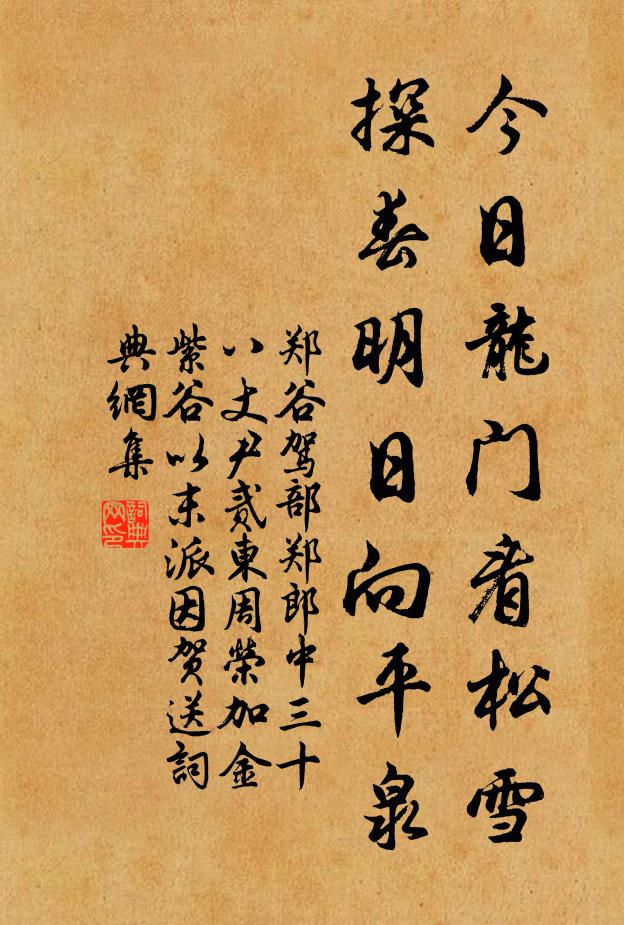 今日龍门看松雪
探春明日向平泉
郑谷驾部郑郎中三十
八丈尹贰東周榮加金
紫谷以末派因贺送詞
典網集
詞典
网印